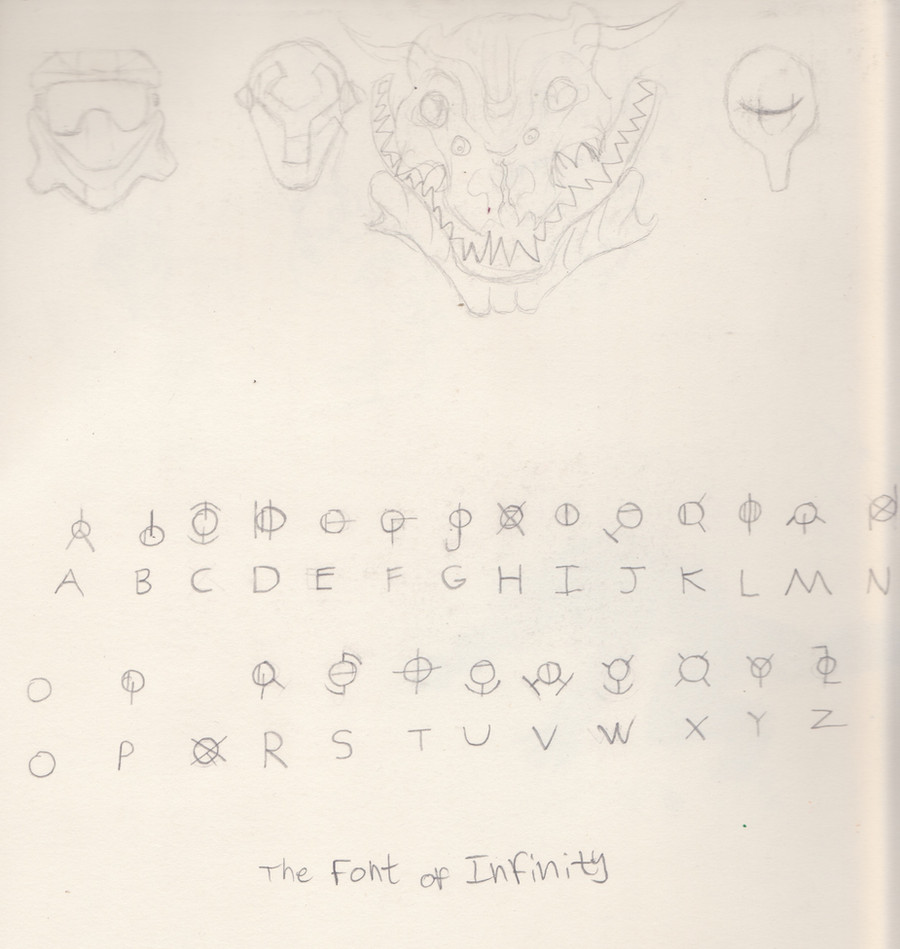 A B C D E F G H I J K L M N
O P R S T U V W X Y Z
The Font of Infinity